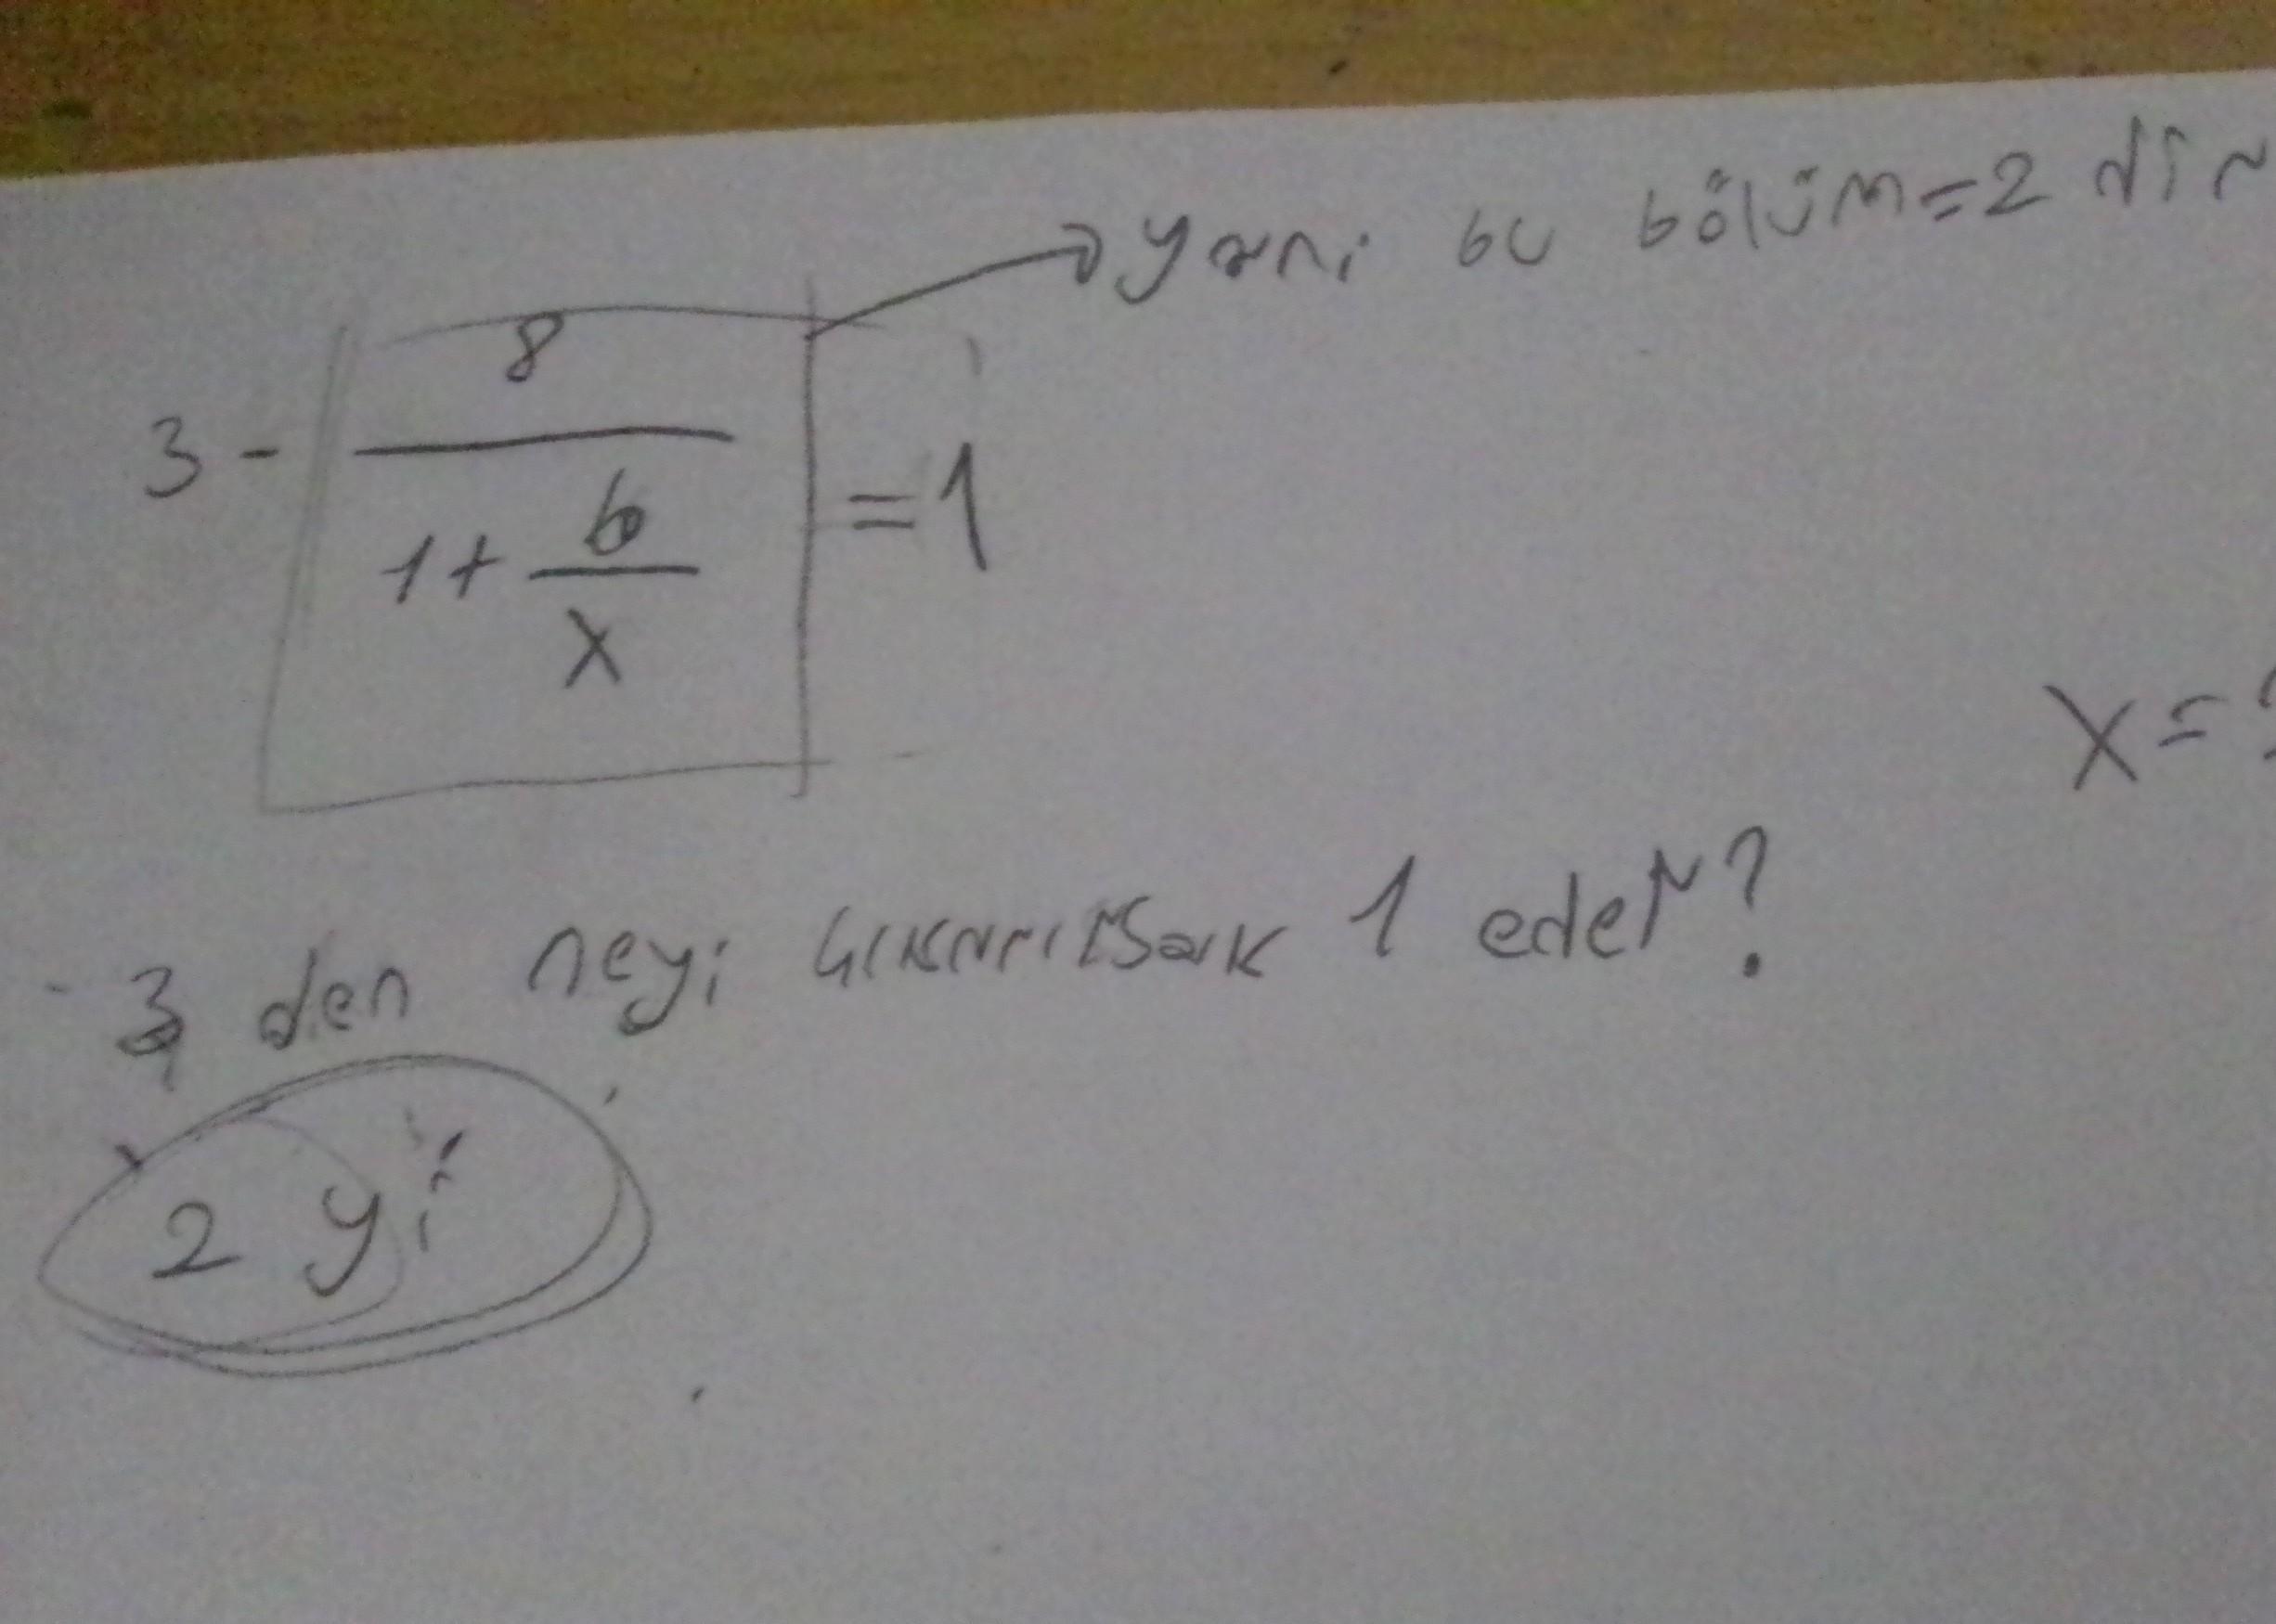 yani bu bölüm=2 dir
8
3- =1
1+ 6
x
x=?
3 den neyi çıkarırsak 1 eder?
2 yi